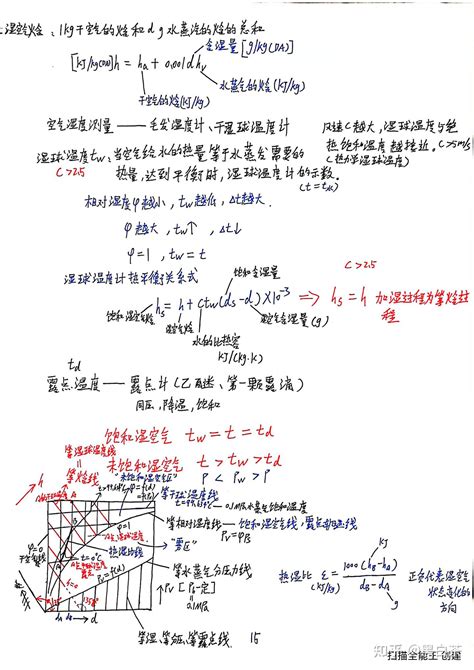 湿空气焓：1kg干空气的焓和d g水蒸气的焓的总和
含湿量[g/kg(DA)]
[kJ/kg(DA)] h = ha + 0.001d hv
水蒸气的焓(kJ/kg)
干空气的焓(kJ/kg)
空气湿度测量——毛发湿度计、干湿球温度计
风速C越大，湿球温度与绝
热饱和温度越接近。C>5m/s
(热力学湿球温度)
湿球温度tw：当空气给水的热量等于水蒸发需要的
C>2.5
热量，达到平衡时，湿球温度计的示数。
相对湿度φ越小，tw越低，Δt越大
φ越大，tw↑，Δt↓
φ=1，tw=t
湿球温度计热平衡关系式
饱和含湿量
C>2.5
hs = h + ctw(ds-d)×10⁻³ ⇒ hs=h 加湿过程为等焓过
程
饱和湿空气焓
湿空气焓
湿空气含湿量(g)
水的比热容
kJ/(kg·K)
td
露点温度——露点计(乙醚、第一颗露滴)
定压，降温，饱和
饱和湿空气 tw=t=td
未饱和湿空气 t>tw>td
等湿球温度线
等焓线
"未饱和湿空气区"
等干球温度线
0.1MPa水蒸气饱和温度
等相对湿度线——饱和湿空气线，露点
φ=1
"雾区"
热湿比线
等水蒸气分压力线
等湿、等
15
kJ
热湿比 ε = 1000(hB-hA) / dB-dA
g
正负代表湿空气
状态变化的
方向
知乎
扫描全能王 创建